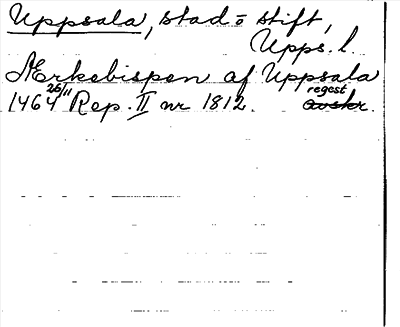 Uppsala, stad o stift,
Upps. l.
Ærkebispen af Uppsala
1464 26/11 Rep. II nr 1812. regest
avskr.